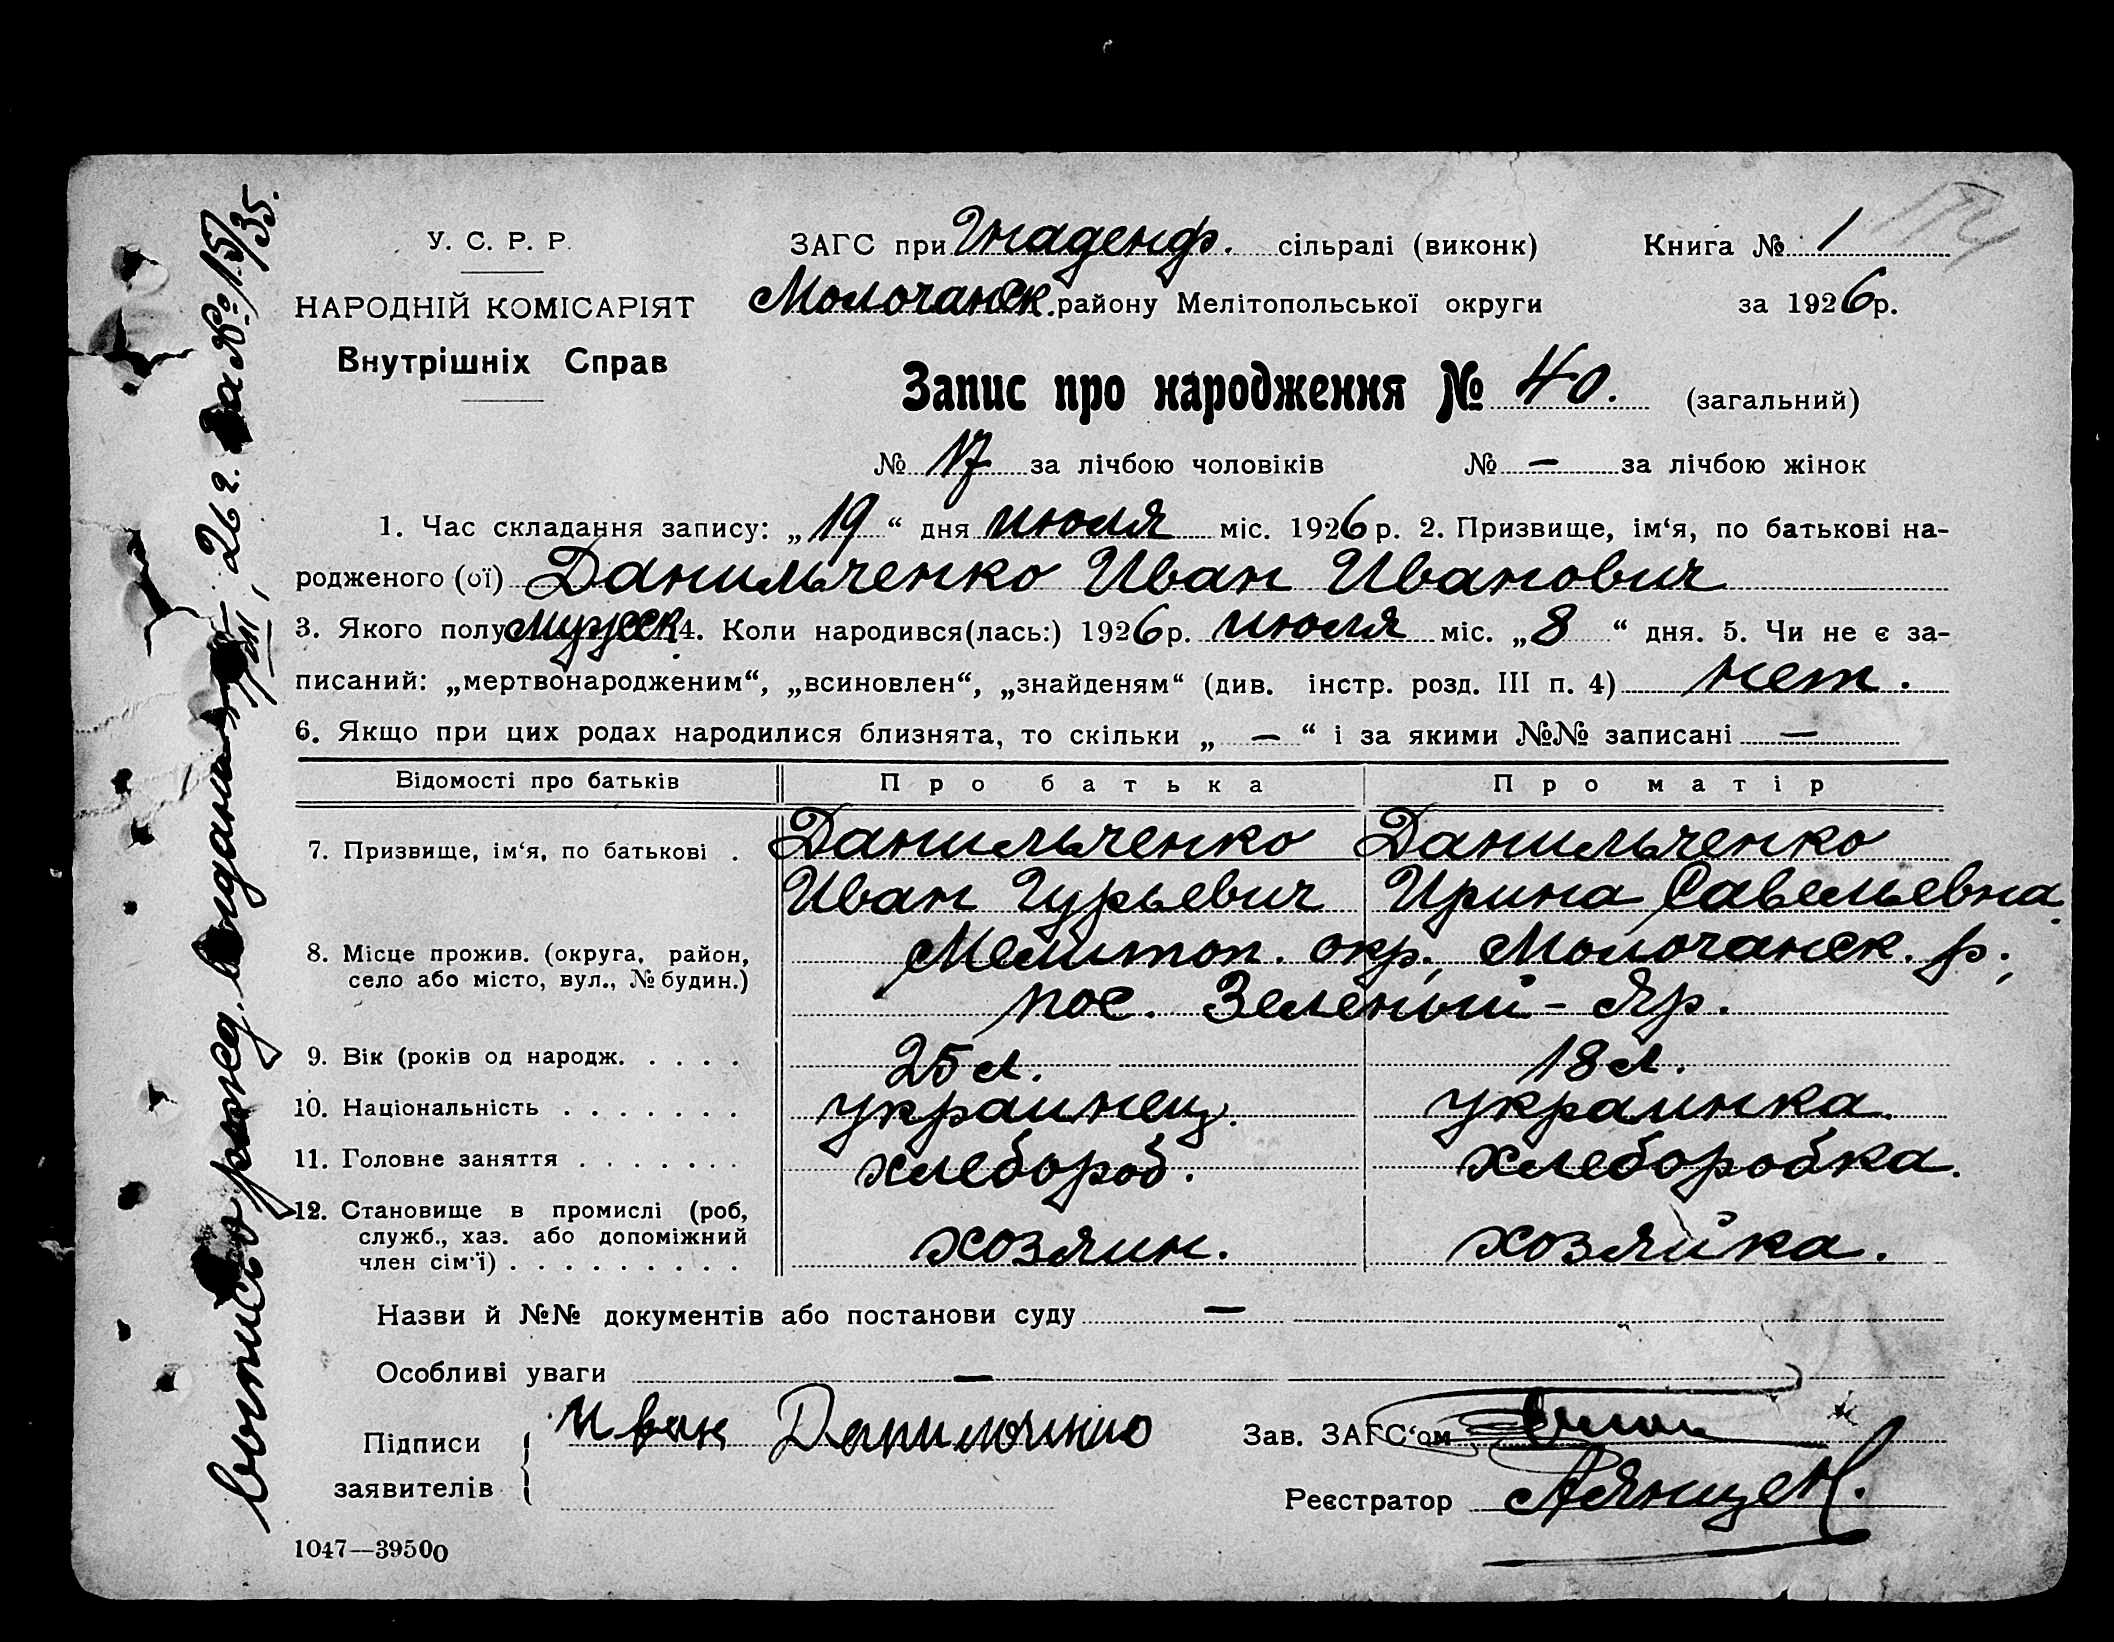 У. С. Р. Р.
НАРОДНІЙ КОМІСАРІЯТ
Внутрішніх Справ
ЗАГС при Гнаденф. сільраді (виконк)
Книга № 1
Молочанск. району Мелітопольської округи
за 1926 р.
Запис про народження № 40. (загальний)
№ 17 за лічбою чоловіків № — за лічбою жінок
1. Час складання запису: „19“ дня июля міс. 1926 р. 2. Призвище, ім‘я, по батькові на-
родженого (ої) Данильченко Иван Иванович
3. Якого полу мужск. 4. Коли народився(лась:) 1926 р. июля міс. „8“ дня. 5. Чи не є за-
писаний: „мертвонародженим“, „всиновлен“, „знайденям“ (див. інстр. розд. III п. 4) нет.
6. Якщо при цих родах народилися близнята, то скільки „ — “ і за якими №№ записані —
Відомості про батьків Про батька Про матір
7. Призвище, ім‘я, по батькові . Данильченко Данильченко
Иван Гурьевич Ирина Савельевна
8. Місце прожив. (округа, район, Мелитоп. окр., Молочанск. р.,
село або місто, вул., № будин.) пос. Зеленый-Яр.
9. Вік (років од народж. . . . . 25 л. 18 л.
10. Національність . . . . . . . украинец. украинка.
11. Головне заняття . . . . . . . хлебороб. хлеборобка.
12. Становище в промислі (роб,
служб., хаз. або допоміжний хозяин. хозяйка.
член сім‘ї) . . . . . . . . .
Назви й №№ документів або постанови суду —
Особливі уваги —
Підписи Иван Данильченко
заявителів
Зав. ЗАГС‘ом
Реєстратор
1047—39500
рожд. 26 г. за № 15/35.